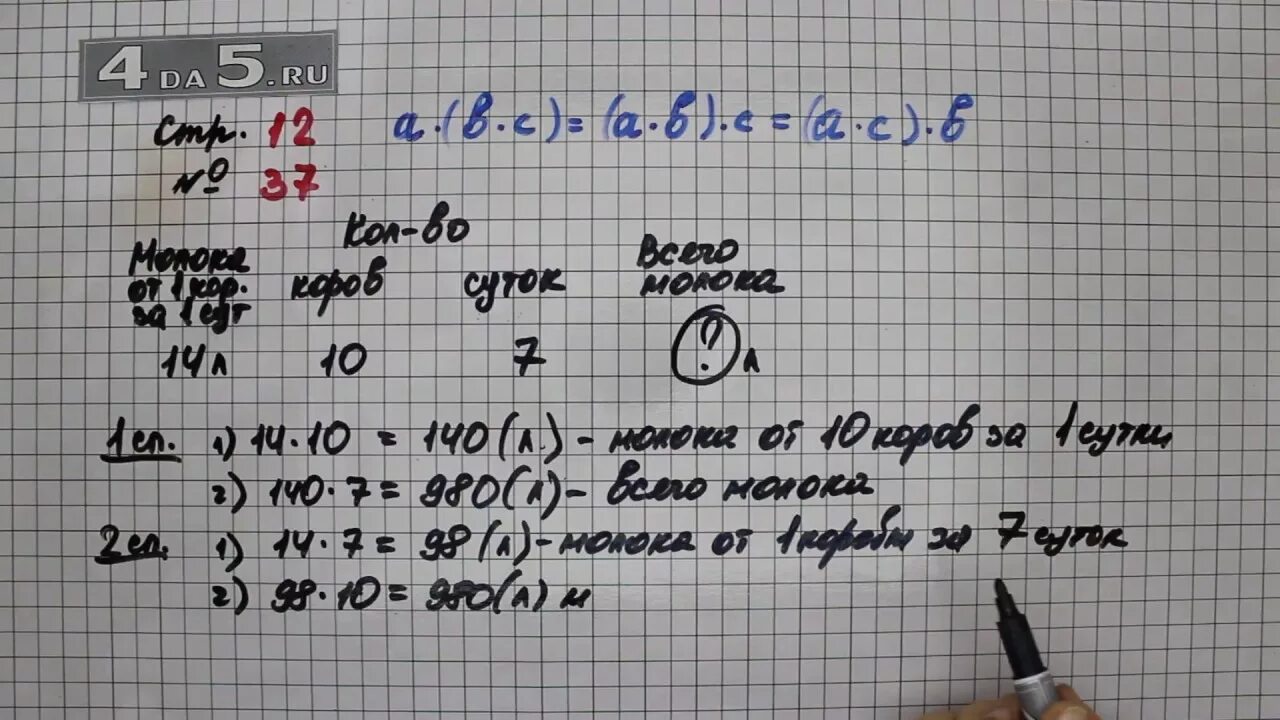 4DA5.RU
Стр. 12
a·(в·с)=(а·в)·с=(а·с)·в
№ 37
Кол-во
Молока от 1 кор. за 1 сут
коров
суток
Всего молока
14 л
10
7
? л
1 сп. 1) 14·10 = 140 (л.) - молока от 10 коров за 1 сутки
2) 140·7 = 980 (л) - всего молока
2 сп. 1) 14·7 = 98 (л) - молока от 1 коровы за 7 суток
2) 98·10 = 980 (л) м